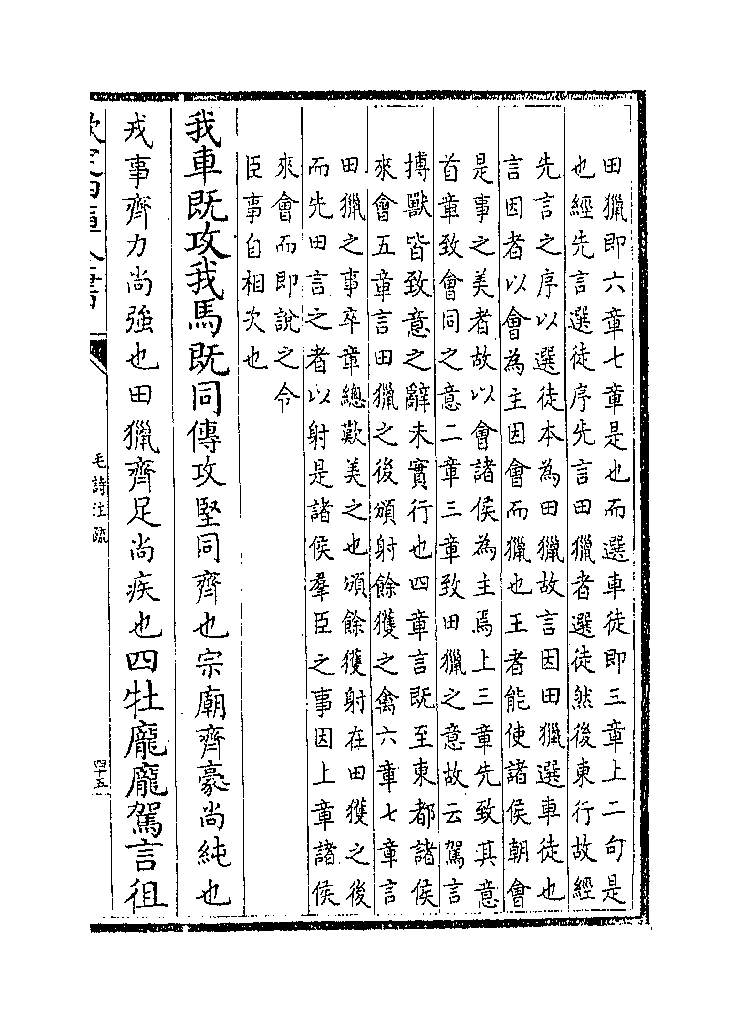 田獵即六章七章是也而選車徒即三章上二句是
也經先言選徒序先言田獵者選徒然後東行故經
先言之序以選徒本為田獵故言因田獵選車徒也
言因者以會為主因會而獵也王者能使諸侯朝會
是事之美者故以會諸侯為主焉上三章先致其意
首章致會同之意二章三章致田獵之意故云駕言
搏獸皆致意之辭未實行也四章言既至東都諸侯
來會五章言田獵之後頒射餘獲之禽六章七章言
田獵之事卒章總歎美之也頒餘獲射在田獲之後
而先田言之者以射是諸侯羣臣之事因上章諸侯
來會而即說之令
臣事自相次也
我車既攻我馬既同傳攻堅同齊也宗廟齊豪尚純也
戎事齊力尚強也田獵齊足尚疾也四牡龐龐駕言徂
毛詩注疏
四十五